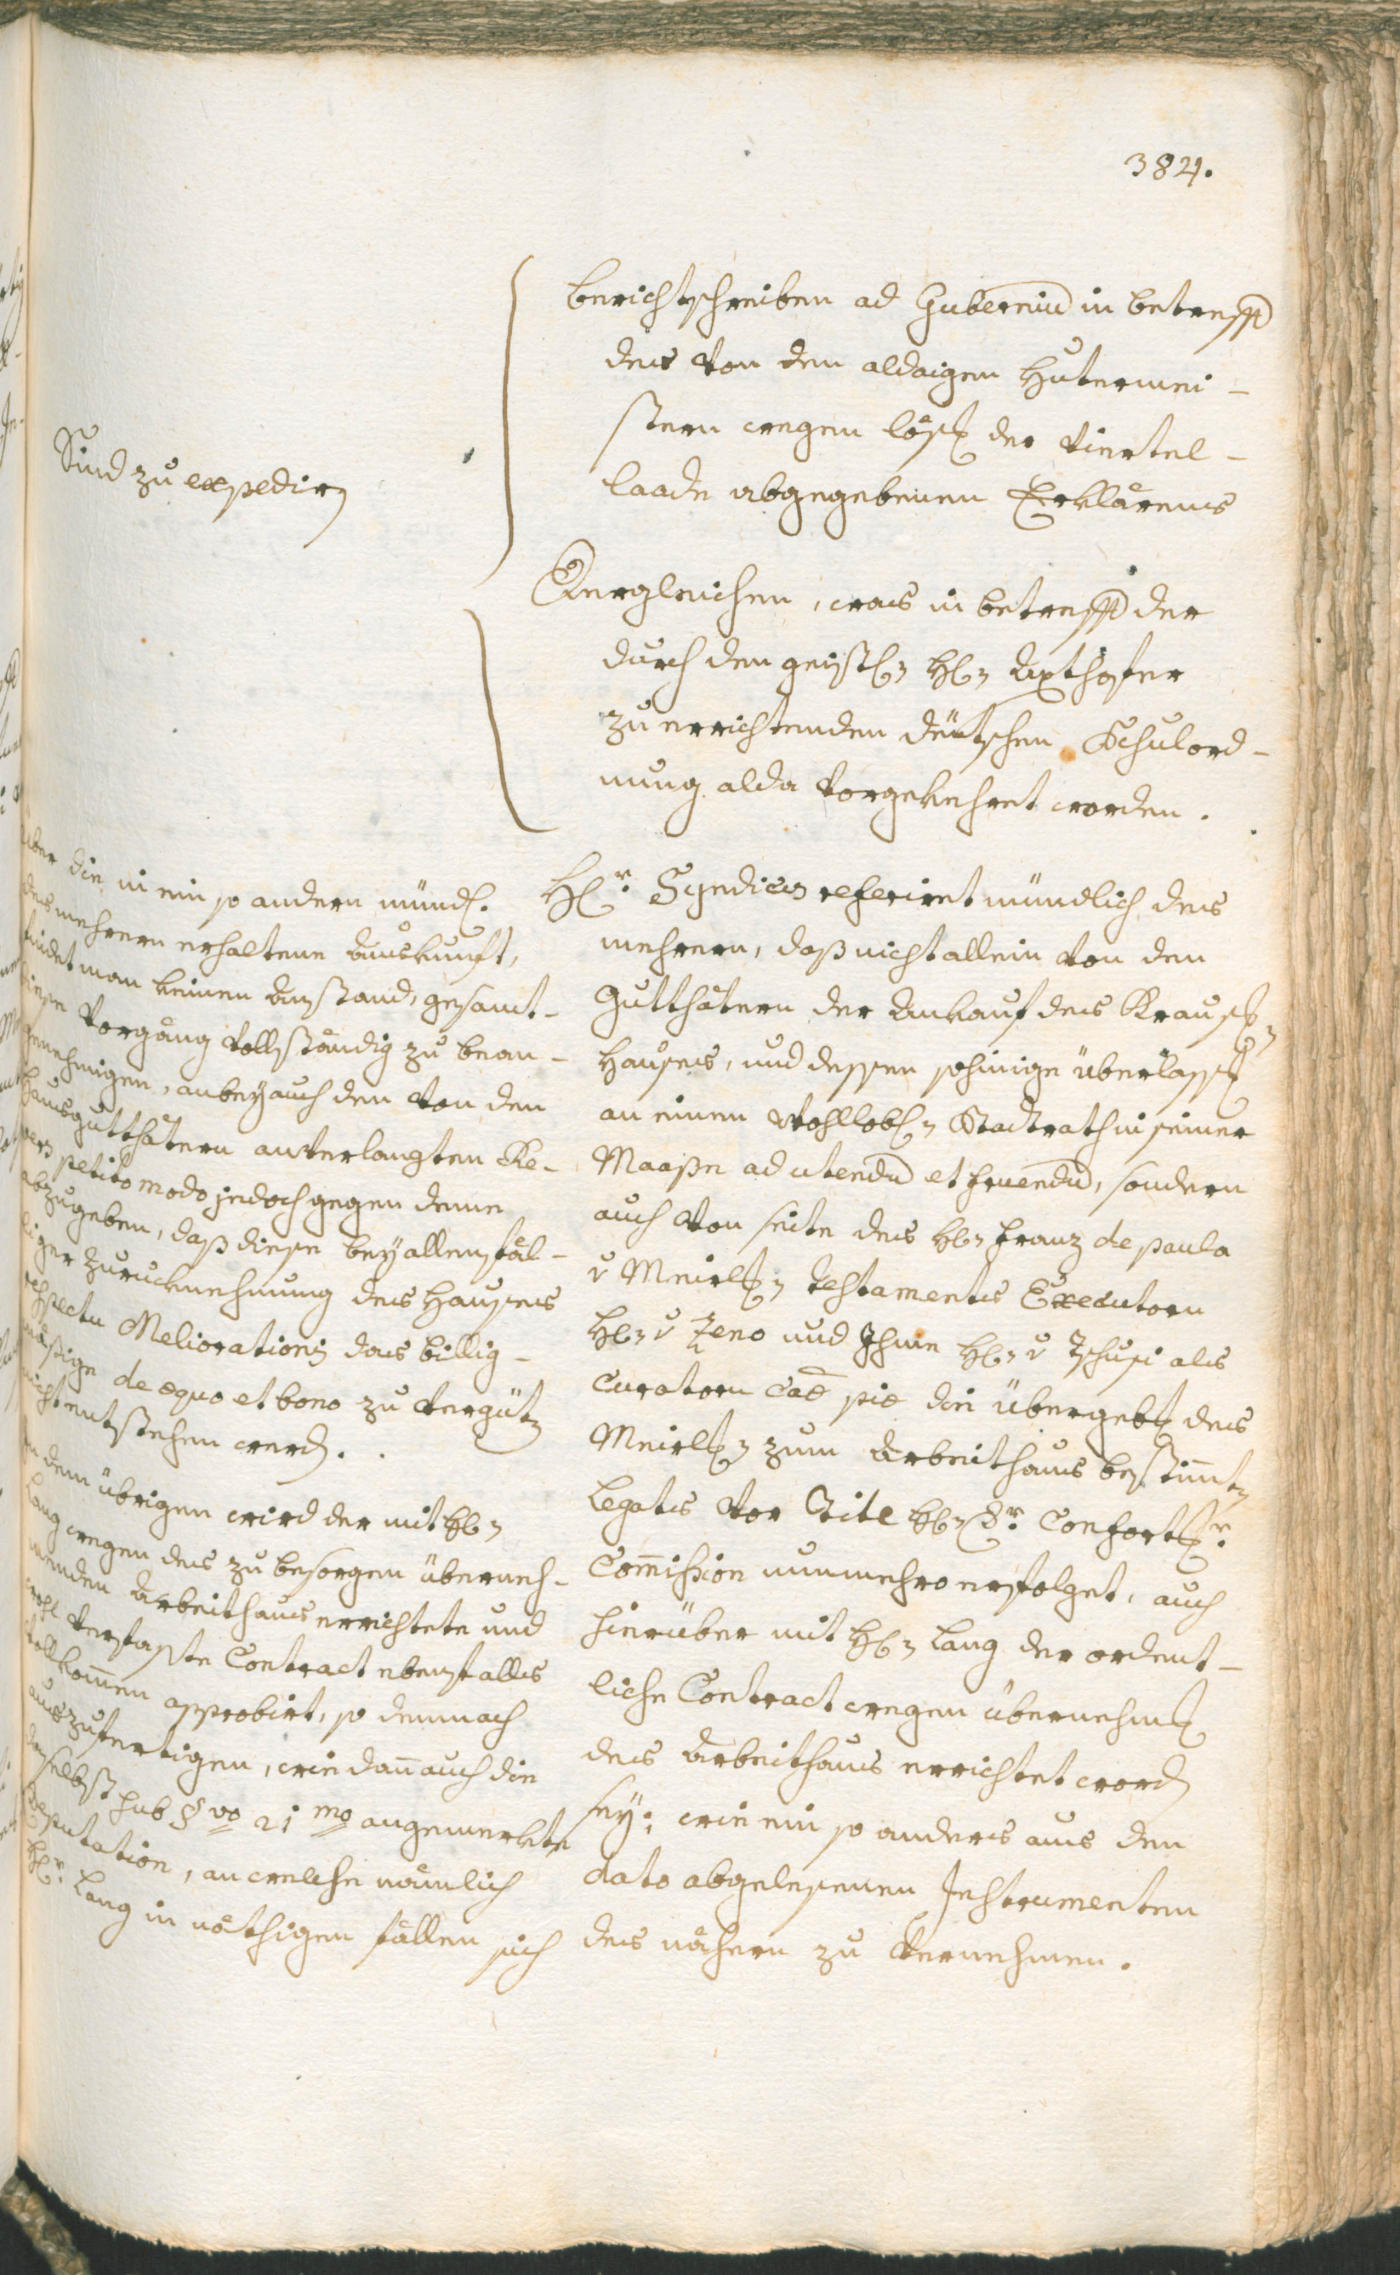 384.
Berichtschreiben ad Guberniu͞ in betreff
des von den aldaigen Hutermei-
stern wegen lösg der Viertel-
laade abgegebenen Erklärens
Sind zu expedirn
Dergleichen, was in betreff der
durch den geistln Hln Axthofer
zu errichtenden deütschen Schulord-
nung alda vorgekehret worden.
Hr. Syndicus referiret mündlich des
mehrern, daß nicht allein von den
Gutthätern der Ankauf des Krausen
Hauses, und dessen sohinige überlassg
an einen Wohllobln Stadtrath in seiner
Maaße ad utendu͞ et fruendu͞, sondern
auch von seite des Hln Franz de paula
v Meirlen Testaments Executorn
Hln v Zeno und Ihme Hln v Tschusi als
Curatorn Cae͞ pie die übergebg des
Meirlen zum Arbeithaus bestim̄ten
Legats vor Titl Hln Dr. Consortr.
Com̄ission nunmehro erfolget, auch
hierüber mit Hln Lang der ordent-
liche Contract wegen übernehmg
des Arbeithaus errichtet wordn
sey: wie ein so anders aus den
dato abgelesenen Instrumenten
des nähern zu vernehmen.
über die in ein so andern mündl.
des mehrern erhaltene Auskunft,
findet man keinen Anstand, gesamt-
diese Vorgäng vollständig zu bean-
genehmigen, anbey auch den von den
Hausgutthätern anverlangten Re-
vers petito modo jedoch gegen deme
abzugeben, daß diese bey allenfäl-
liger zuruknehmung des Hauses
respectu Melioration͞ das billig-
mäßige de æquo et bono zu vergütn
nicht entstehen werdn.
In dem übrigen wird der mit Hln
Lang wegen des zu besorgen überneh-
menden Arbeithaus errichtete und
wohl verfaßte Contract ebenfalls
vollkom̄en approbirt, so demnach
auszufertigen, wie dan̄ auch die
daselbst sub §vo 21mo angemerkte
Deputation, an welche nämlich
Hr. Lang in nöthigen fällen sich